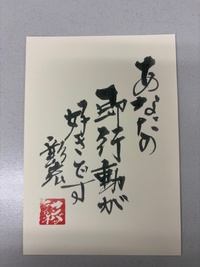 あなたの
即行動が
好きです